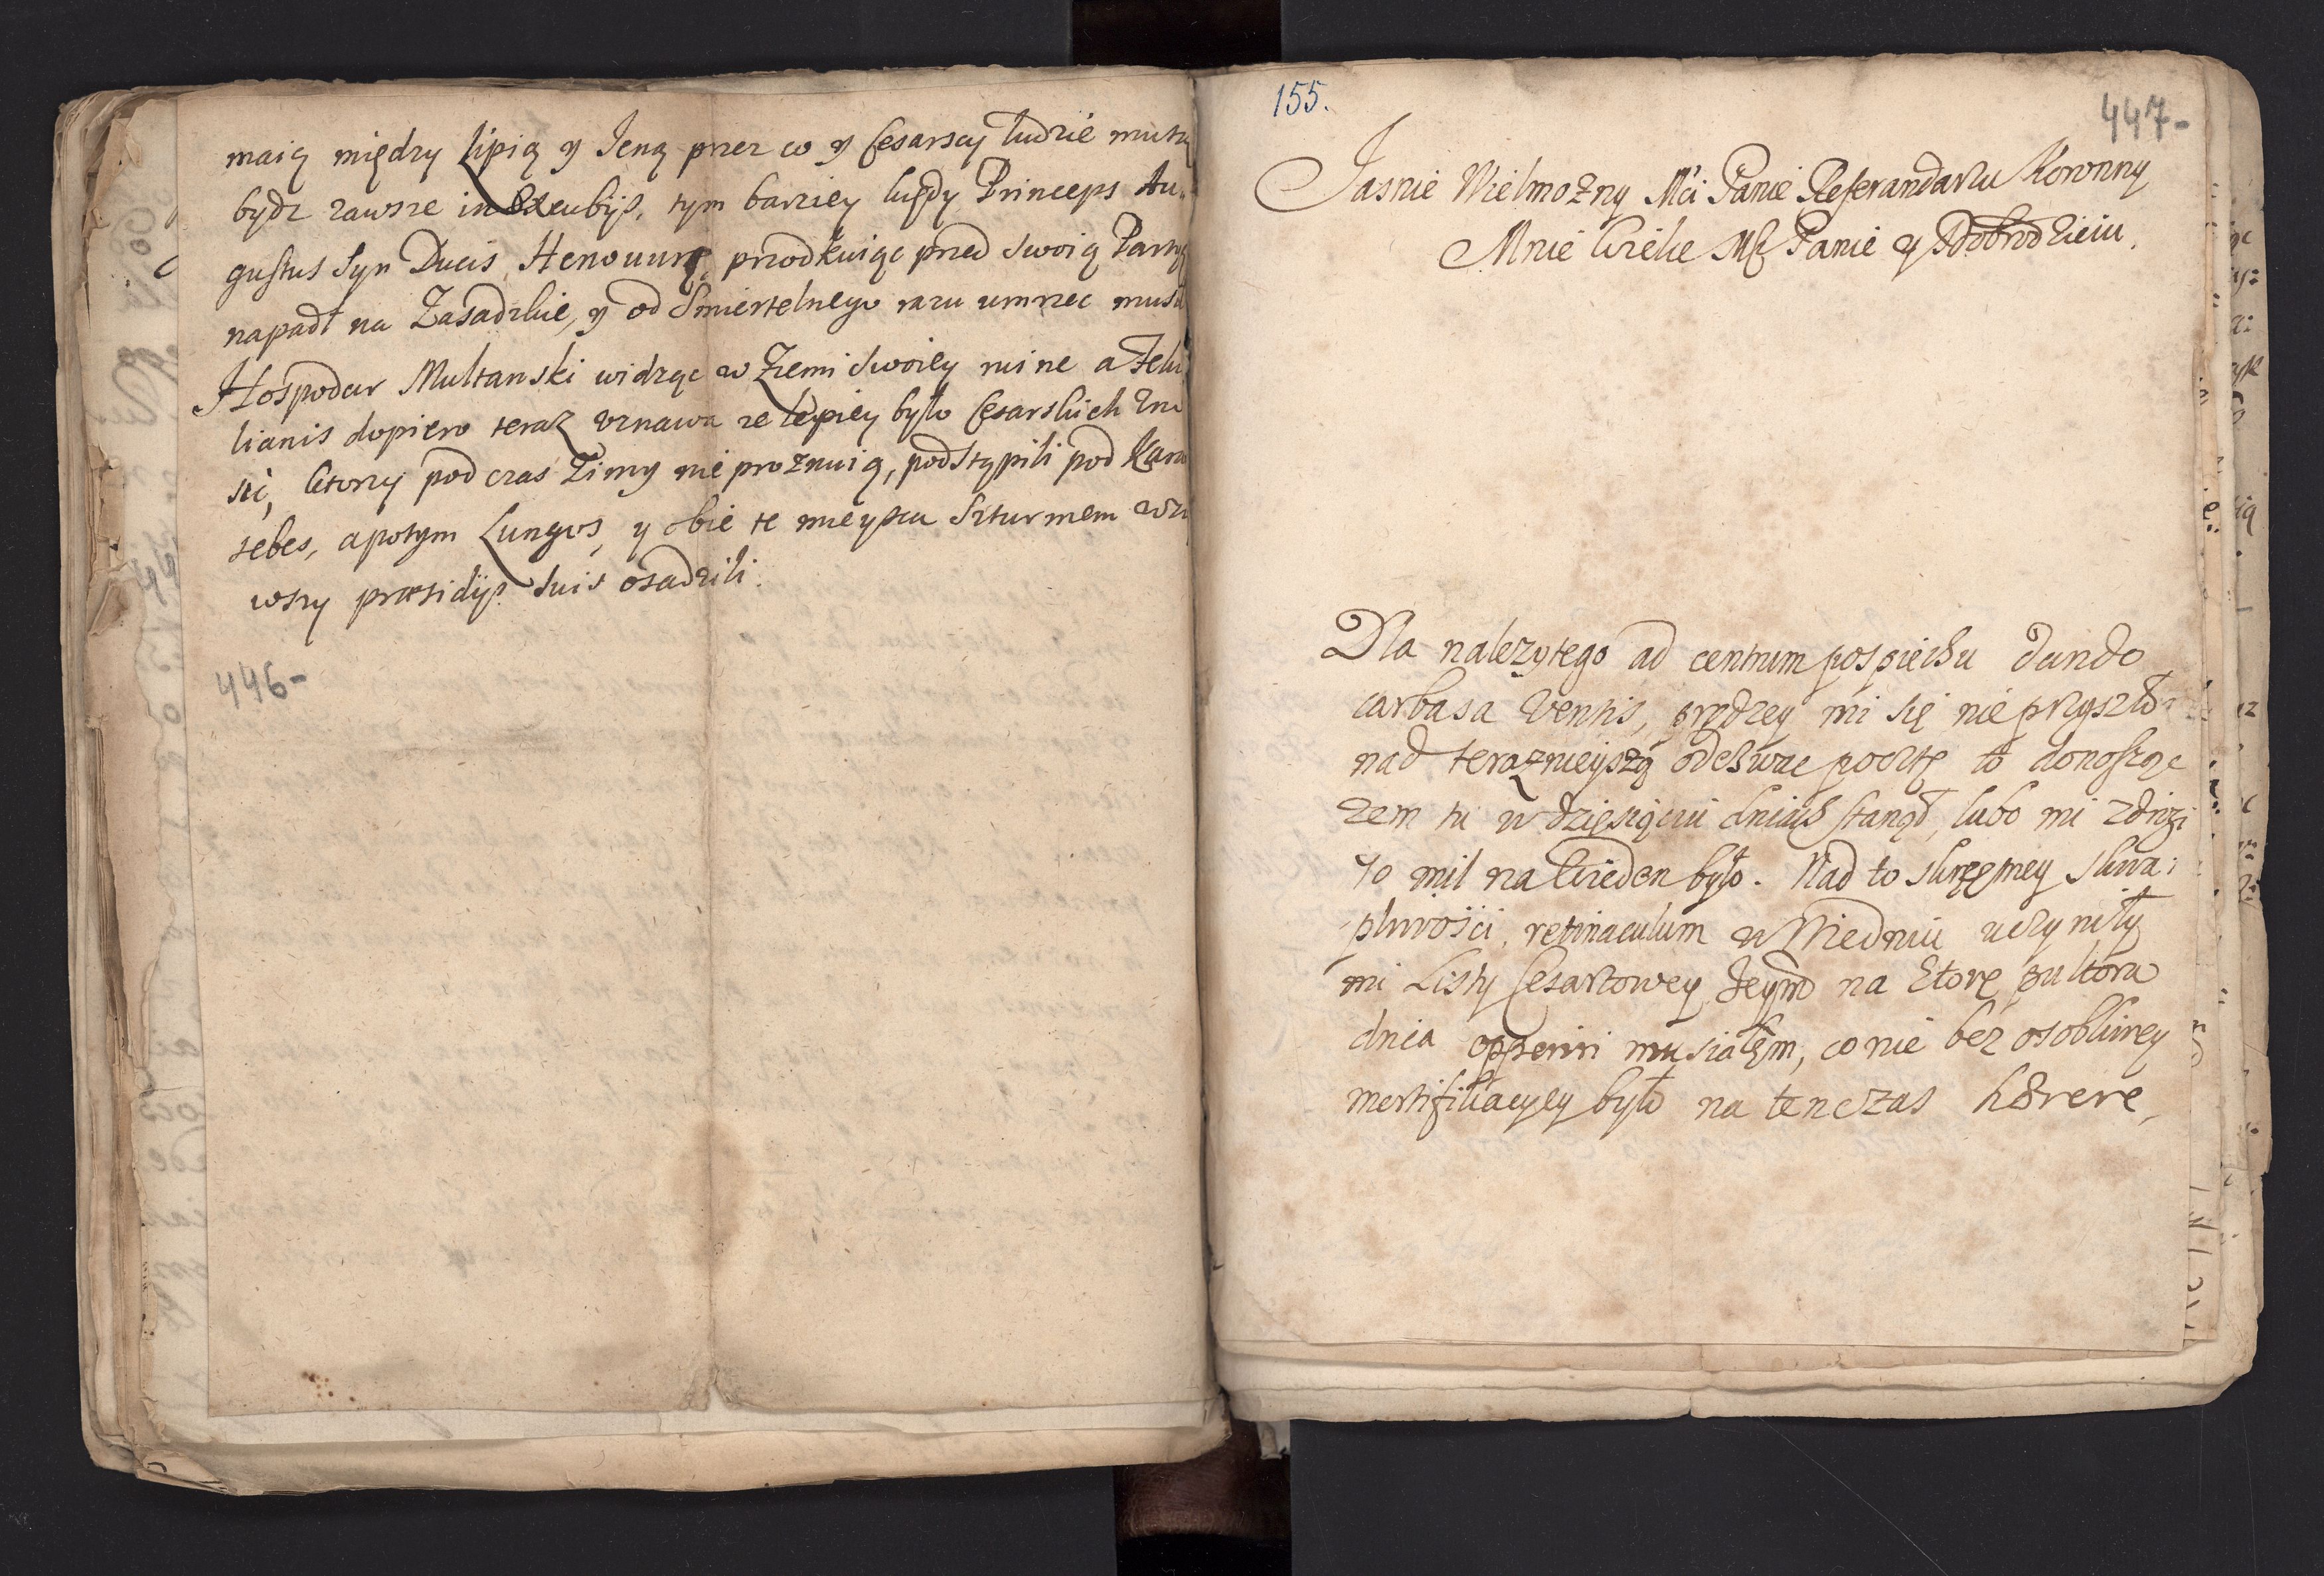 maią między Lipią y Jeną przez co y Cesarscy ludzie muszą
bydz zawsze in Excubijs, tym barziey kiedy Princeps Au-
gustus Syn Ducis Henouuræ, przodkuiąc przed swoią Partyą
napadł na Zasadzkie, y od Smiertelnego razu umrzec musi
Hospodar Multanski widząc w Ziemi Swoiey ruine a Teku
lianis dopiero teraz uznawa ze lepiey było Cesarskich zno
sić, ktorzy pod czas Zimy nie proznuią, podstąpili pod Karan
sebes, a potym Lungos, y obie te mieysca Szturmem wzi
wszy præsidijs suis osadzili.
446-
155.
447-
Jasnie Wielmozny Mći Panie Referandarzu Koronny
Mnie Wielce Mś Panie y Dobrodzieiu.
Dla nalezytego ad centrum pospiechu dando
carbasa Ventis, prędzey mi się nie przyszło
nad terazniejszą odezwac pocztę to donosząc
zem tu w dziesiąciu dniach stanął, lubo mi
70 mil na Wieden było. Nad to skrzętney skwa:
pliwości, retinaculum w Wiedniu uczyniły
mi Listy Cesarzowey Jeymci na ktore pultora
dnia opperiri musiałem, co nie bez osobliwey
mortifikacyey było na tenczas hærere,